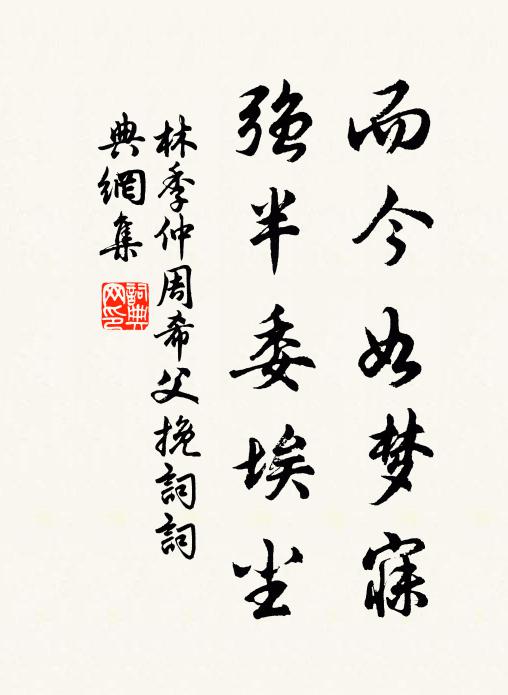 而今如梦寐
强半委埃尘
林季仲周希父挽詞詞
典網集
詞典网印